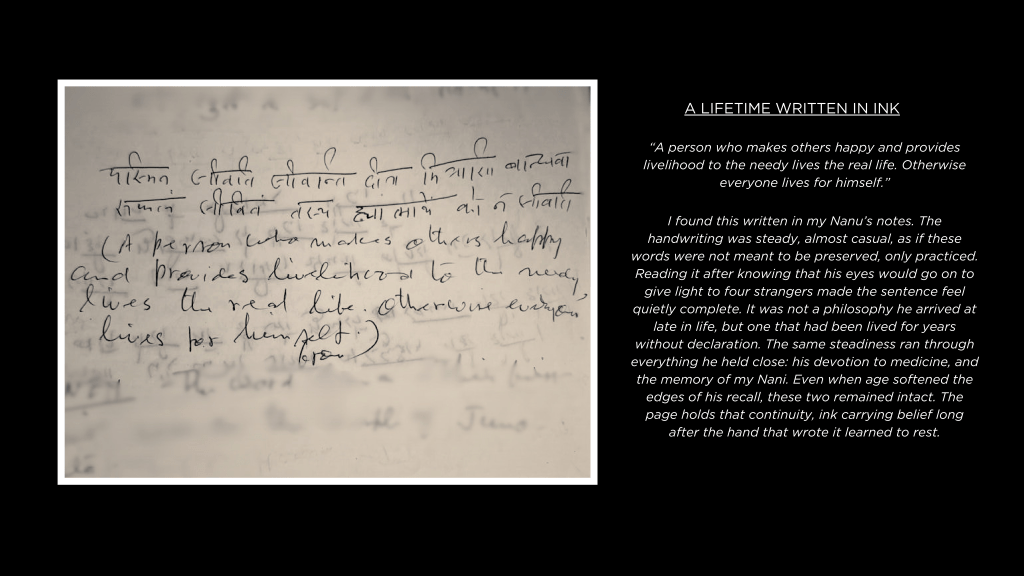 यस्मिन् जीवति जीवन्ति
को न जीवति
(A person who makes others happy
and provides livelihood to the needy,
lives the real life. otherwise everyone
lives for himself.)
A LIFETIME WRITTEN IN INK
“A person who makes others happy and provides
livelihood to the needy lives the real life. Otherwise
everyone lives for himself.”
I found this written in my Nanu’s notes. The
handwriting was steady, almost casual, as if these
words were not meant to be preserved, only practiced.
Reading it after knowing that his eyes would go on to
give light to four strangers made the sentence feel
quietly complete. It was not a philosophy he arrived at
late in life, but one that had been lived for years
without declaration. The same steadiness ran through
everything he held close: his devotion to medicine, and
the memory of my Nani. Even when age softened the
edges of his recall, these two remained intact. The
page holds that continuity, ink carrying belief long
after the hand that wrote it learned to rest.